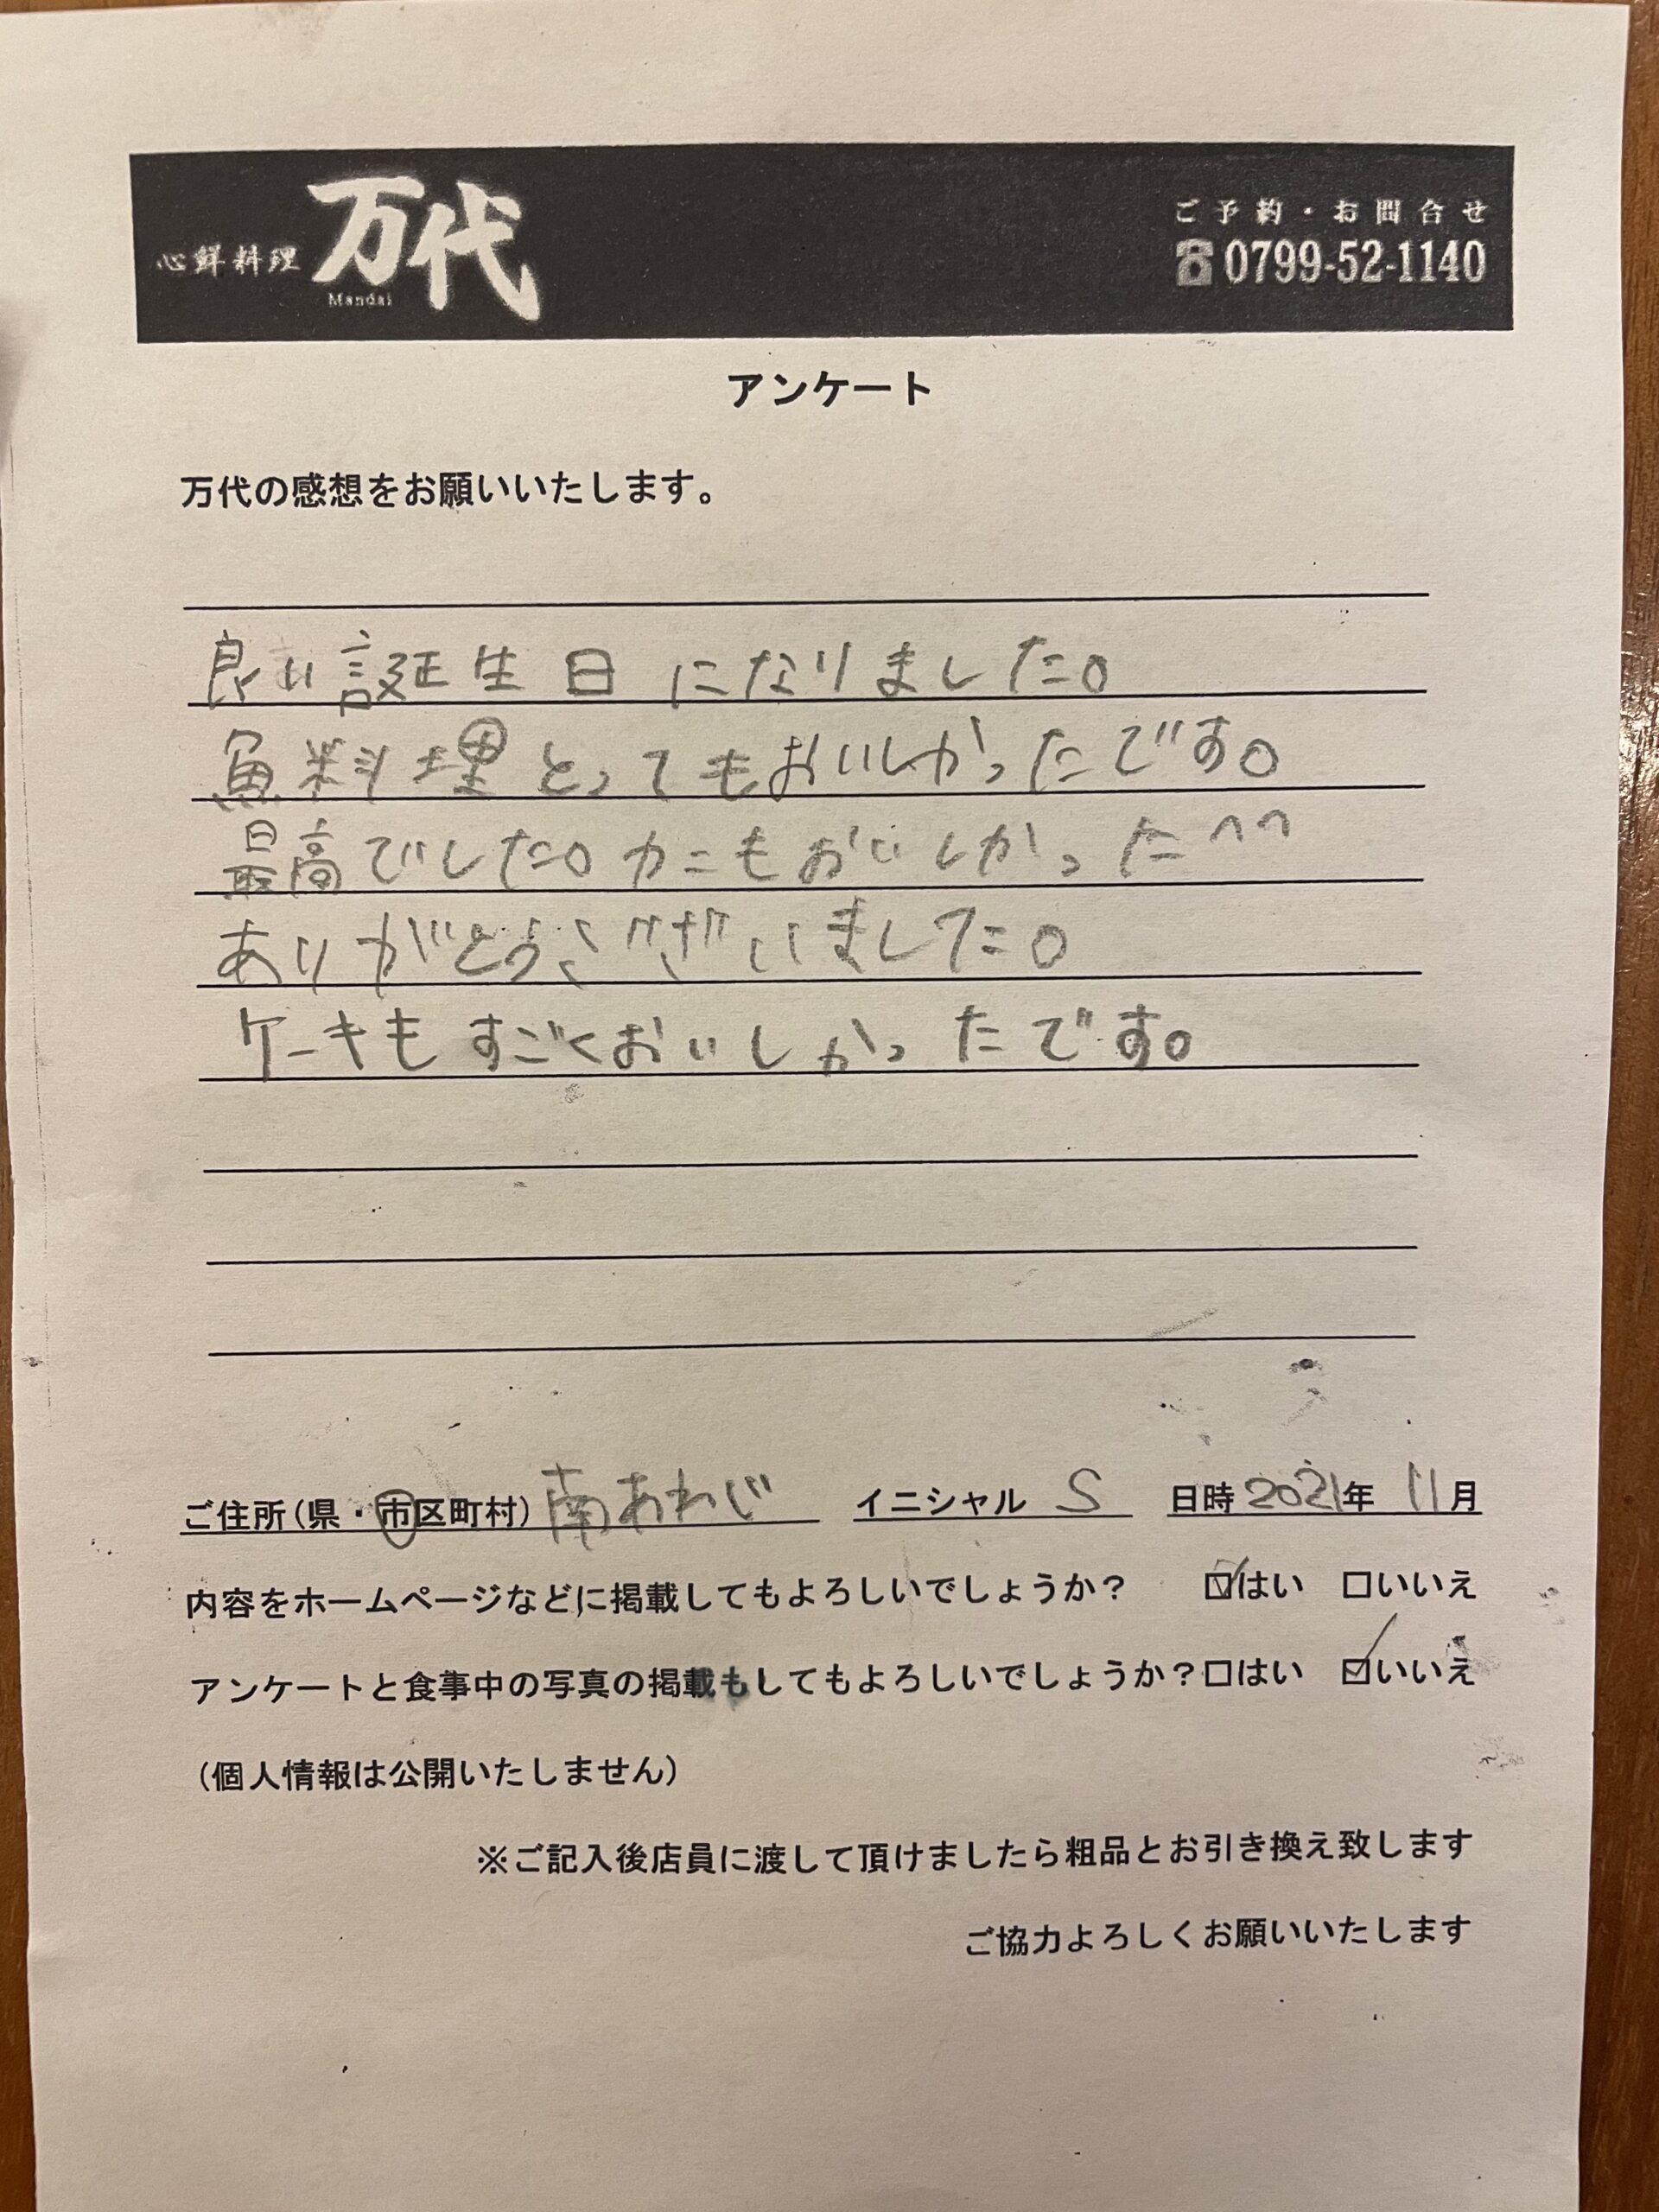 心鮮料理 万代
Mandai
ご予約・お問合せ
☎0799-52-1140
アンケート
万代の感想をお願いいたします。
良い誕生日になりました。
魚料理とってもおいしかったです。
最高でした。カニもおいしかった^^
ありがとうございました。
ケーキもすごくおいしかったです。
ご住所(県・市区町村) 南あわじ イニシャル S 日時 2021年 11月
内容をホームページなどに掲載してもよろしいでしょうか? ☑はい □いいえ
アンケートと食事中の写真の掲載もしてもよろしいでしょうか?□はい ☑いいえ
(個人情報は公開いたしません)
※ご記入後店員に渡して頂けましたら粗品とお引き換え致します
ご協力よろしくお願いいたします